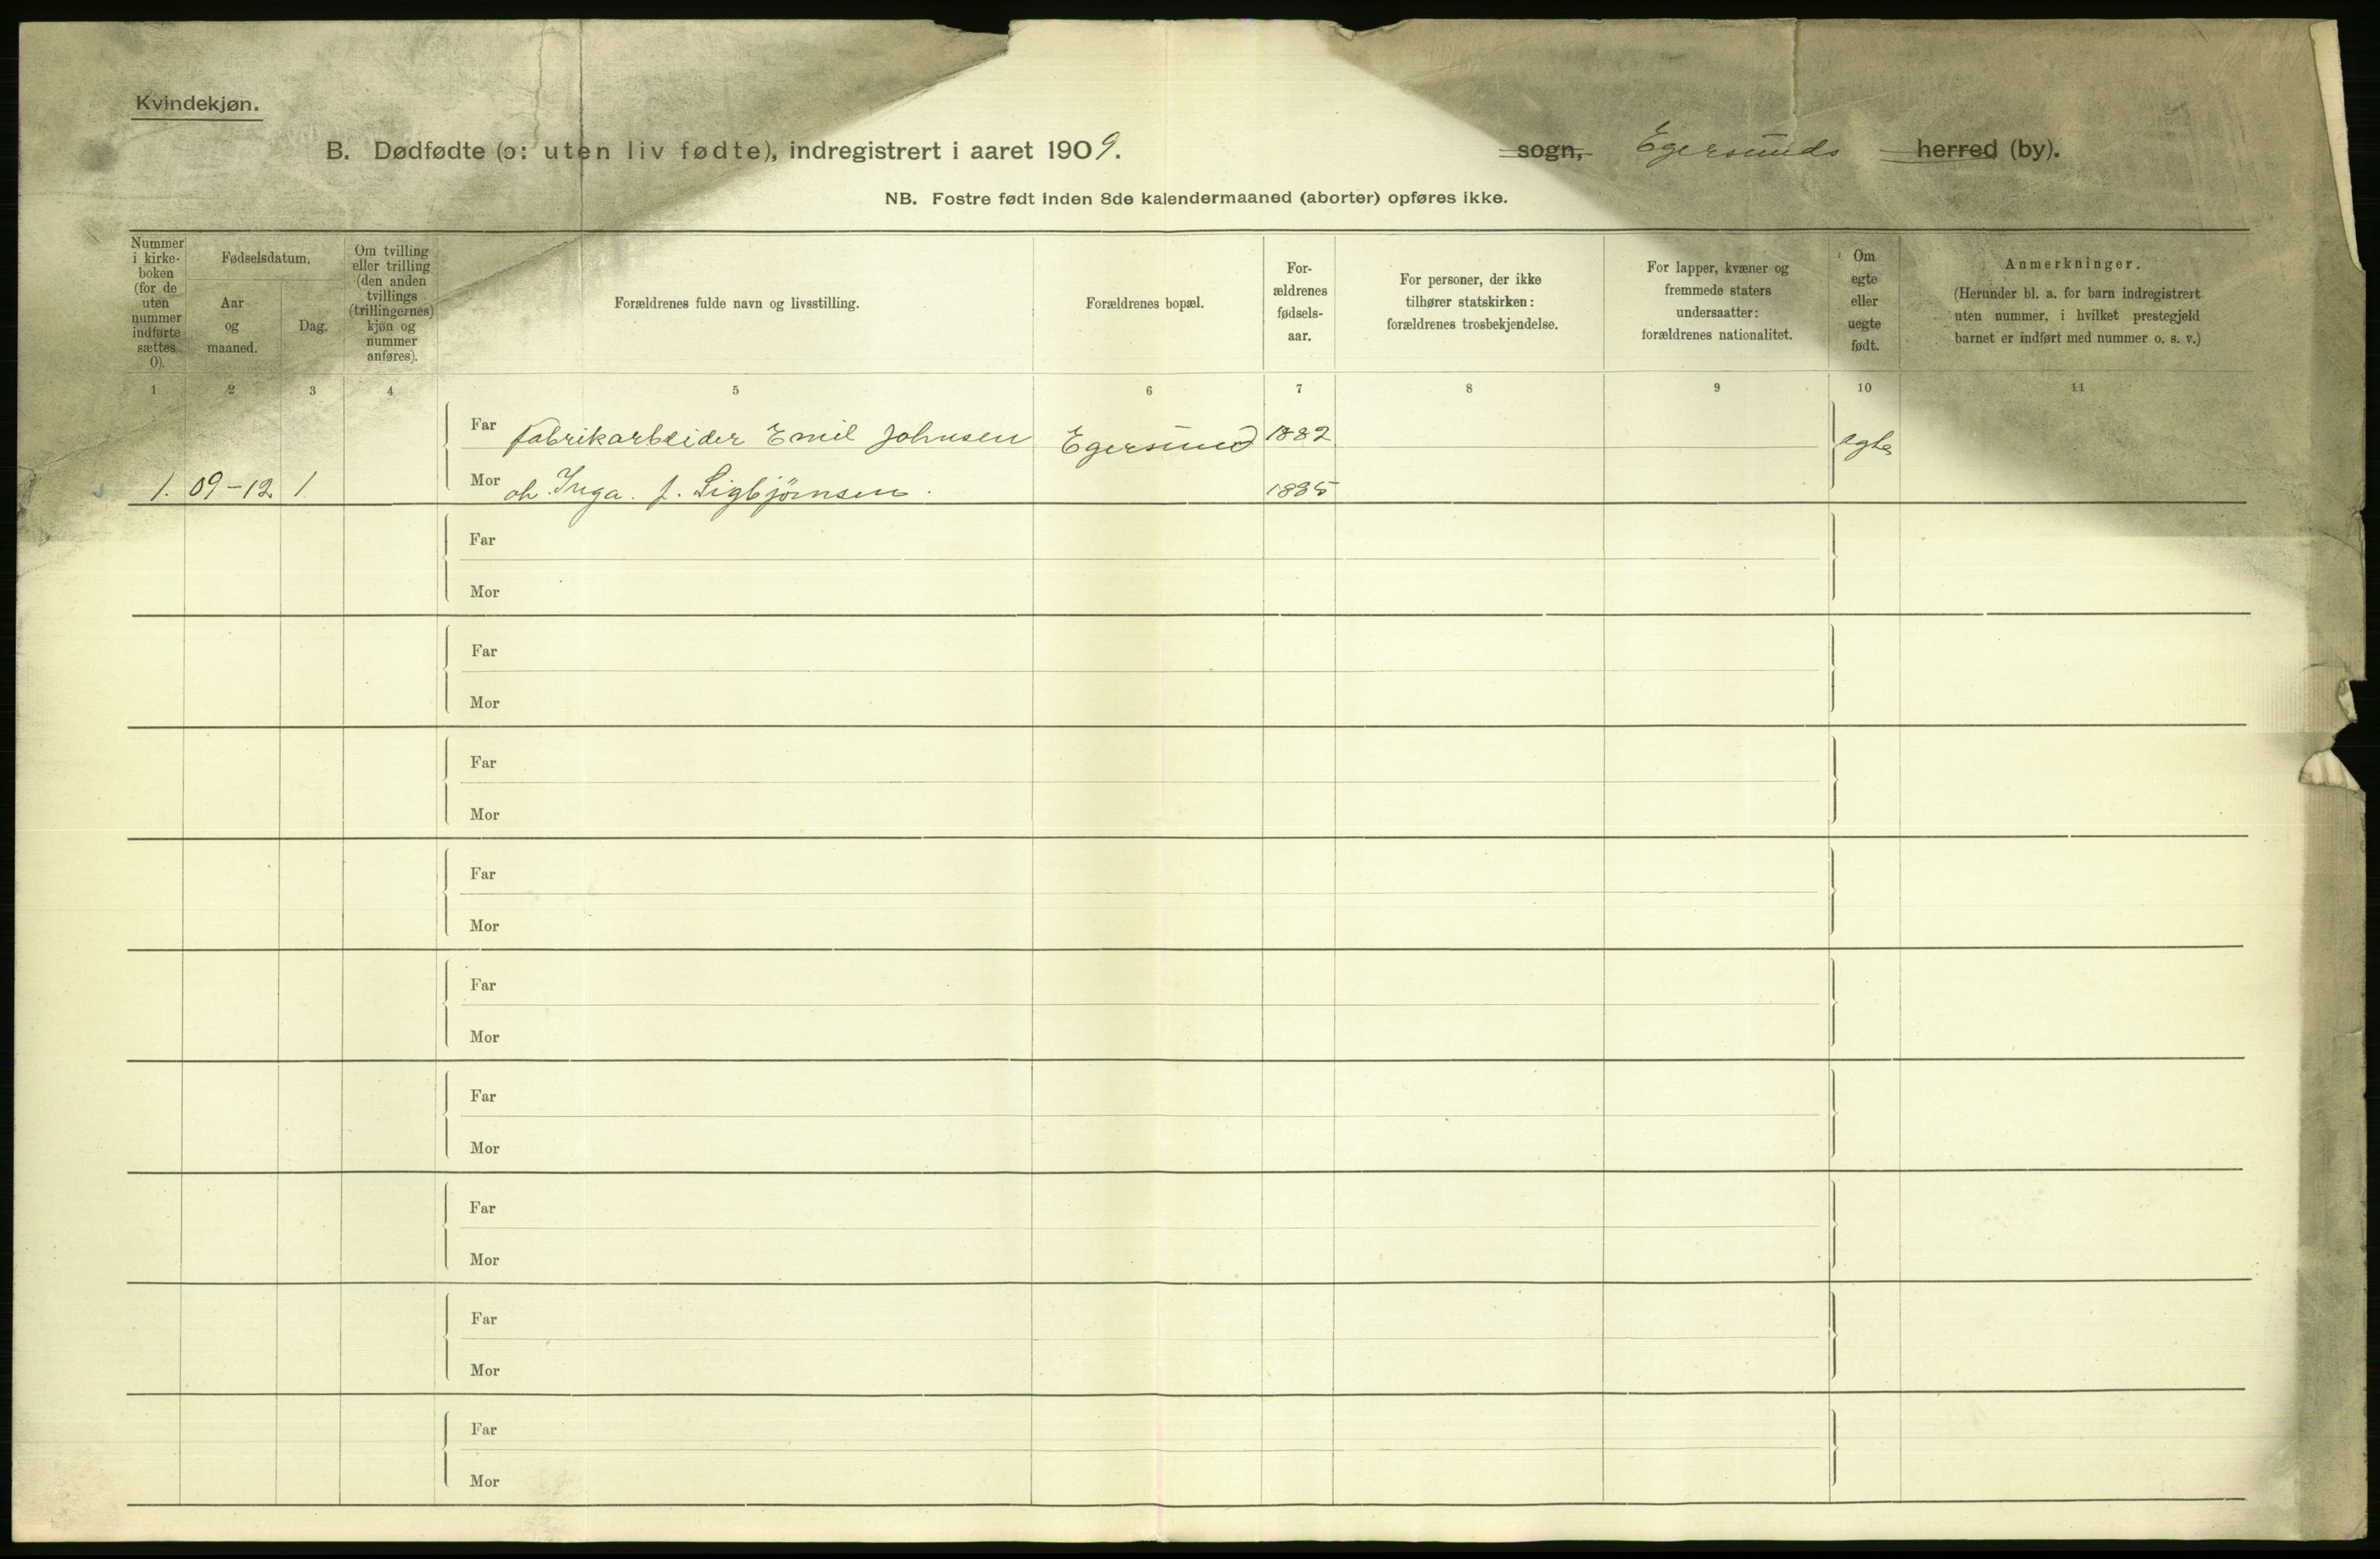 Kvindekjøn.
B. Dødfødte (ɔ: uten liv fødte), indregistrert i aaret 1909. sogn, Egersunds herred (by).
NB. Fostre født inden 8de kalendermaaned (aborter) opføres ikke.
Nummer
i kirke-
boken
(for de
uten
nummer
indførte
sættes
0).
Fødselsdatum.
Aar
og
maaned.
Dag.
Om tvilling
eller trilling
(den anden
tvillings
(trillingernes)
kjøn og
nummer
anføres).
Forældrenes fulde navn og livsstilling.
Forældrenes bopæl.
For-
ældrenes
fødsels-
aar.
For personer, der ikke
tilhører statskirken:
forældrenes trosbekjendelse.
For lapper, kvæner og
fremmede staters
undersaatter:
forældrenes nationalitet.
Om
egte
eller
uegte
født.
Anmerkninger.
(Herunder bl. a. for barn indregistrert
uten nummer, i hvilket prestegjeld
barnet er indført med nummer o. s. v.)
1 2 3 4 5 6 7 8 9 10 11
Far Fabrikarbeider Emil Johnsen Egersund 1882 egte
1. 09-12. 1 Mor oh. Inga. f. Sigbjörnsen. 1885
Far
Mor
Far
Mor
Far
Mor
Far
Mor
Far
Mor
Far
Mor
Far
Mor
Far
Mor
Far
Mor